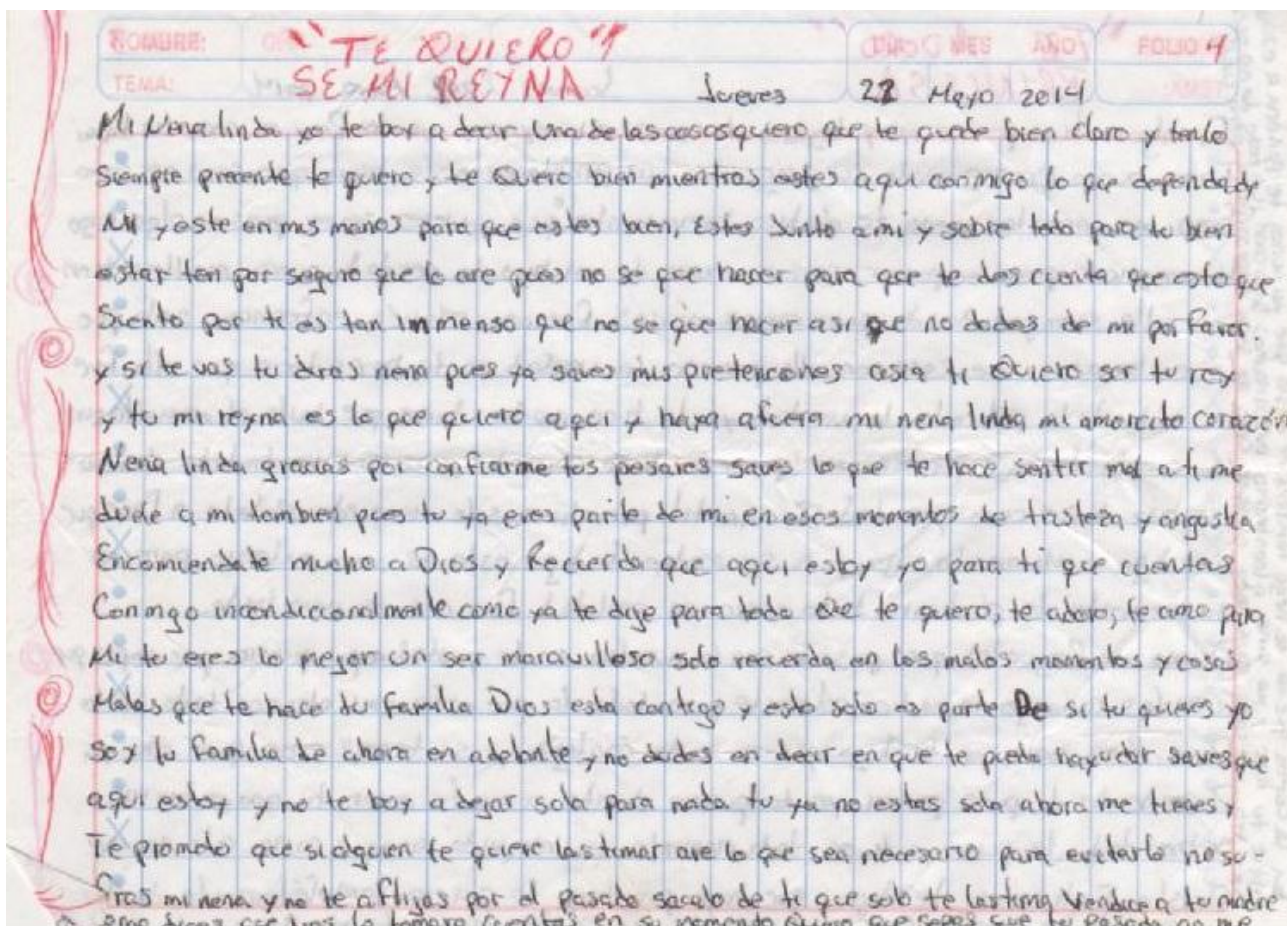 NOMBRE: "TE QUIERO" DIA MES AÑO FOLIO 4
TEMA: SE MI REYNA Jueves 22 Mayo 2014
Mi Nena linda yo te boy a decir Una de las cosas quiero que te quede bien claro y tenlo
Siempre precente te quiero y te Quiero bien mientras estes aqui conmigo lo que dependa de
Mi y este en mis manos para que estes bien, Estes Junto a mi y sobre todo para tu bien
estar ten por seguro que lo are pues no se que hacer para que te des cuenta que esto que
Siento por ti es tan immenso que no se que hacer asi que no dudes de mi por favor.
y si te vas tu diras nena pues ya saves mis pretenciones asia ti Quiero ser tu rey
y tu mi reyna es lo que quiero aqui y haya afuera mi nena linda mi amorcito corazón
Nena linda gracias por confiarme tus pesares saves lo que te hace sentir mal a ti me
duele a mi tambien pues tu ya eres parte de mi en esos momentos de tristeza y angustia
Encomiendate mucho a Dios y Recuerda que aqui estoy yo para ti que cuentas
Conmigo incondiccionalmente como ya te dije para todo que te quiero, te adoro, te amo para
Mi tu eres lo mejor un ser maravilloso solo recuerda en los malos momentos y cosas
Malas que te hace tu familia Dios esta contigo y esto solo es parte De si tu quieres yo
soy tu familia de ahora en adelante y no dudes en decir en que te puedo hayudar saves que
aqui estoy y no te boy a dejar sola para nada tu ya no estas sola ahora me tienes y
Te prometo que si alguien te quiere lastimar are lo que sea necesario para evitarlo no su-
fras mi nena y no te aflijas por el pasado sacalo de ti que solo te lastima Vendice a tu madre
como dices que Dios le tomara cuentas en su momento Quiero que sepas que tu Pasado no me